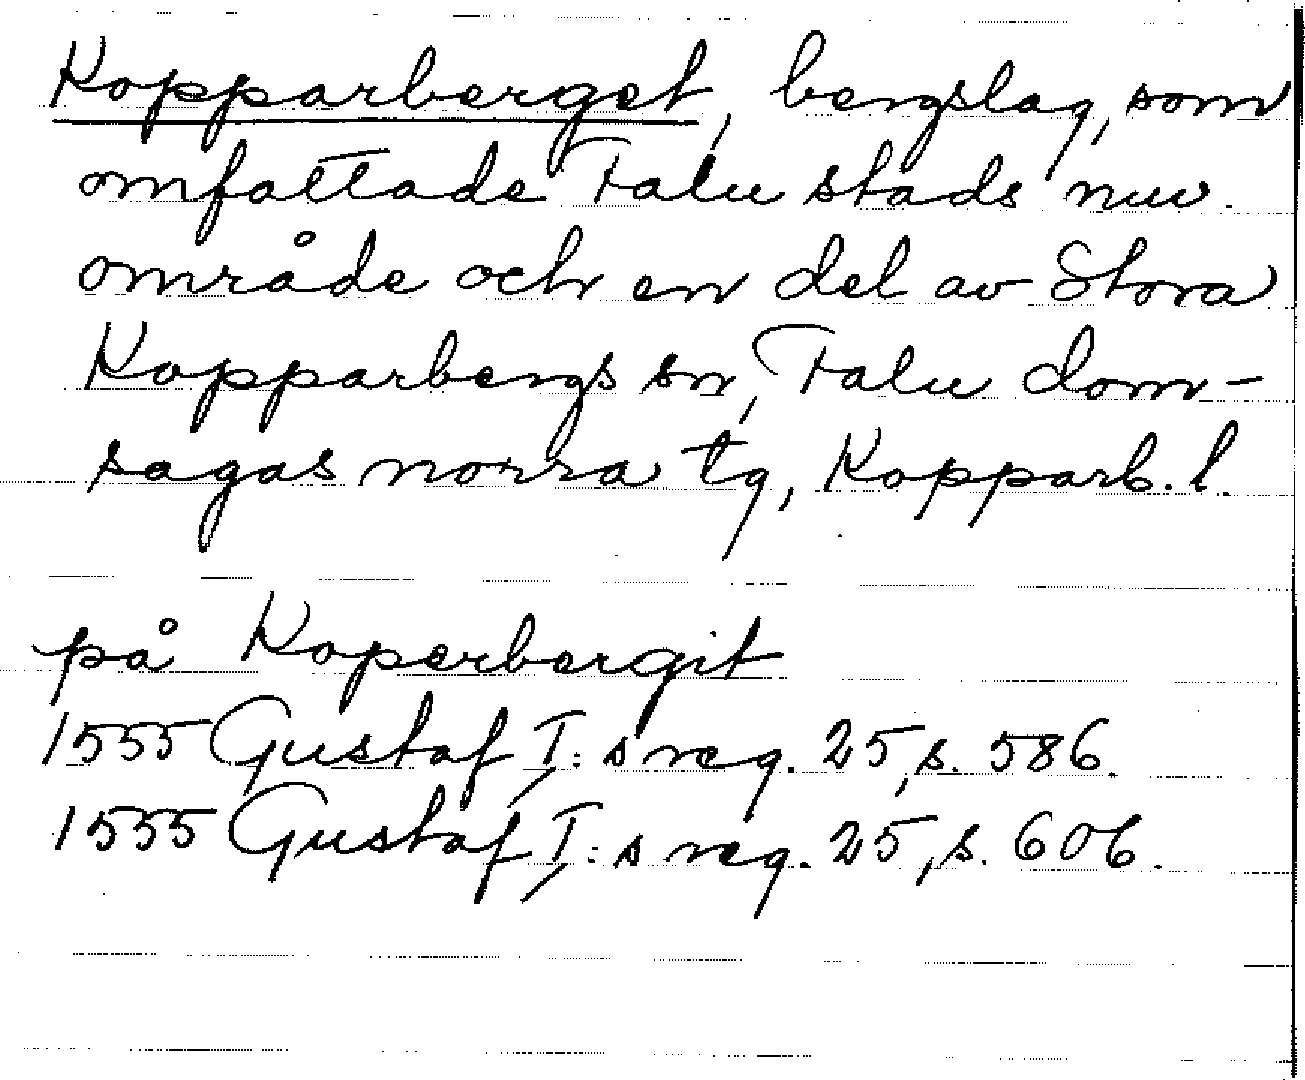 Kopparberget, bergslag, som
omfattade Falu stads nuv.
område och en del av Stora
Kopparbergs sn, Falu dom-
sagas norra tg, Kopparb. l.
på Koperbergit
1555 Gustaf I:s reg. 25, s. 586.
1555 Gustaf I:s reg. 25, s. 606.